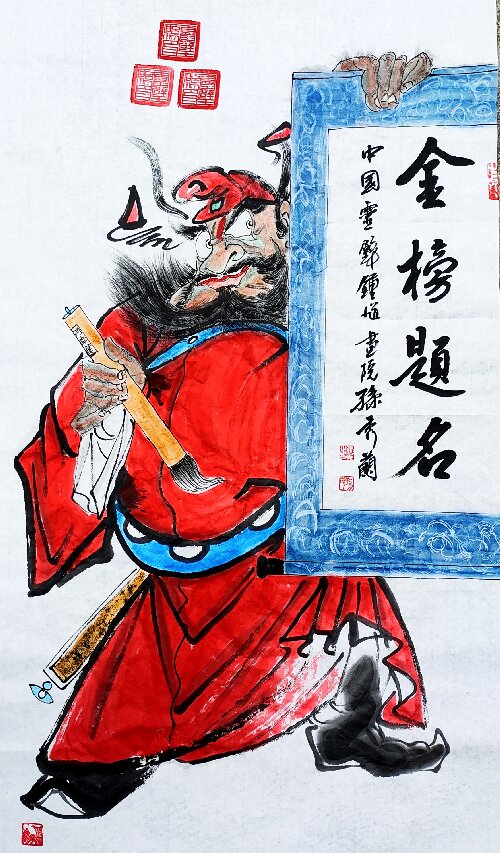 金榜題名
中國靈璧鍾馗畫院孫秀蘭